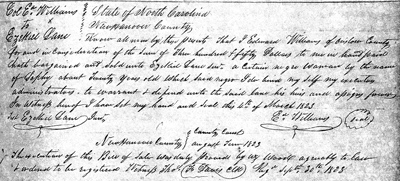 Col Ed Williams State of North Carolina
To New Hanover County,
Ezekiel Lane Know all men by these Presents that I Edward Williams of Onslow County
for and in Consideration of the Sum of Three hundred & fifty Dollars to me in hand paid
hath bargained and Sold unto Ezekiel Lane Senr. a Certain negro Woman by the name
of Sophy about Twenty Years old Which said negro I do bind my self my executors
administrators. to warrant & defend unto the Said Lane his heirs and assigns forever
In Witness hereof I have Set my hand and Seal this 4th of March 1803
Test Ezekiel Lane Junr. Ed Williams (Seal)
New Hanover County County Court August Term 1803
The execution of this Bill of Sale was duly Proved by Wood agreeably to law
& ordered to be registered Witness Tho. F Davis Clk Sept. 1803